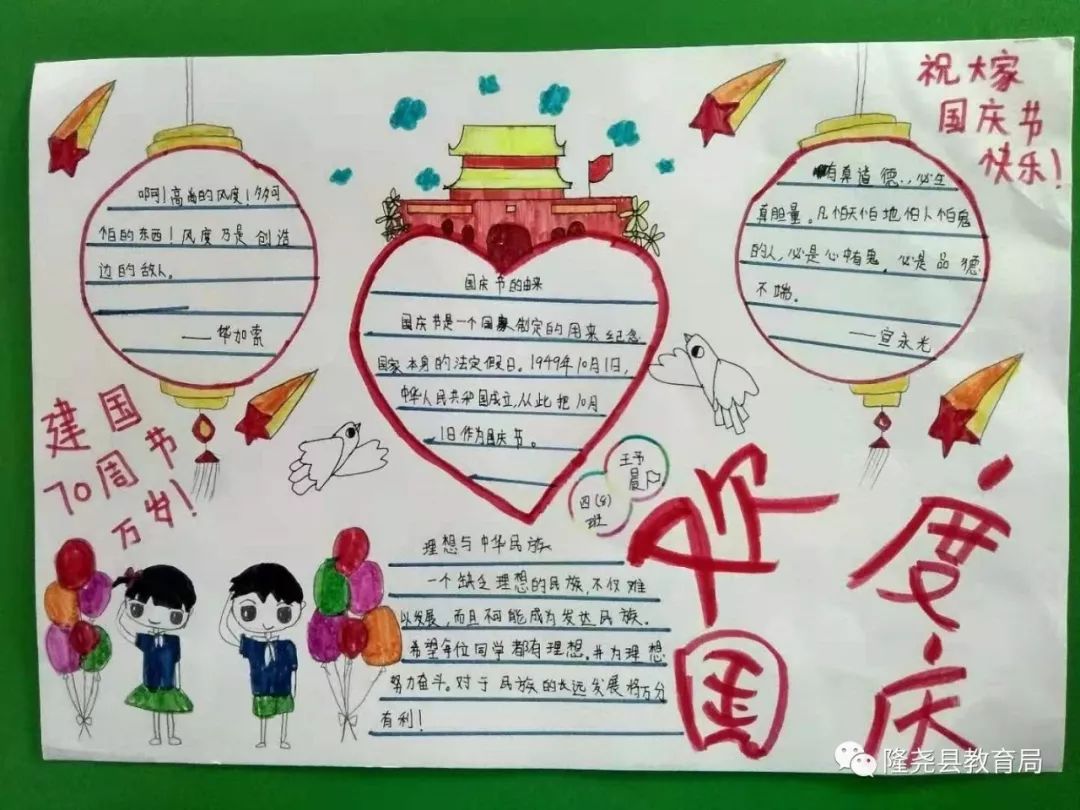 祝大家
国庆节
快乐!
啊!高尚的风度!多可
怕的东西!风度乃是创造
边的敌人。
——毕加索
国庆节的由来
国庆节是一个国家制定的用来纪念
国家本身的法定假日。1949年10月1日,
中华人民共和国成立,从此把10月
1日作为国庆节。
有真道德..必生
真胆量。凡怕天怕地怕人怕鬼
的人,必是心中有鬼,必是品德
不端。
——宣永光
建国
70周节
万岁!
王予
晨
四(8)
班
理想与中华民族
一个缺乏理想的民族,不仅难
以发展,而且不可能成为发达民族。
希望每位同学都有理想.并为理想
努力奋斗。对于民族的长远发展将万分
有利!
欢度
国庆
隆尧县教育局